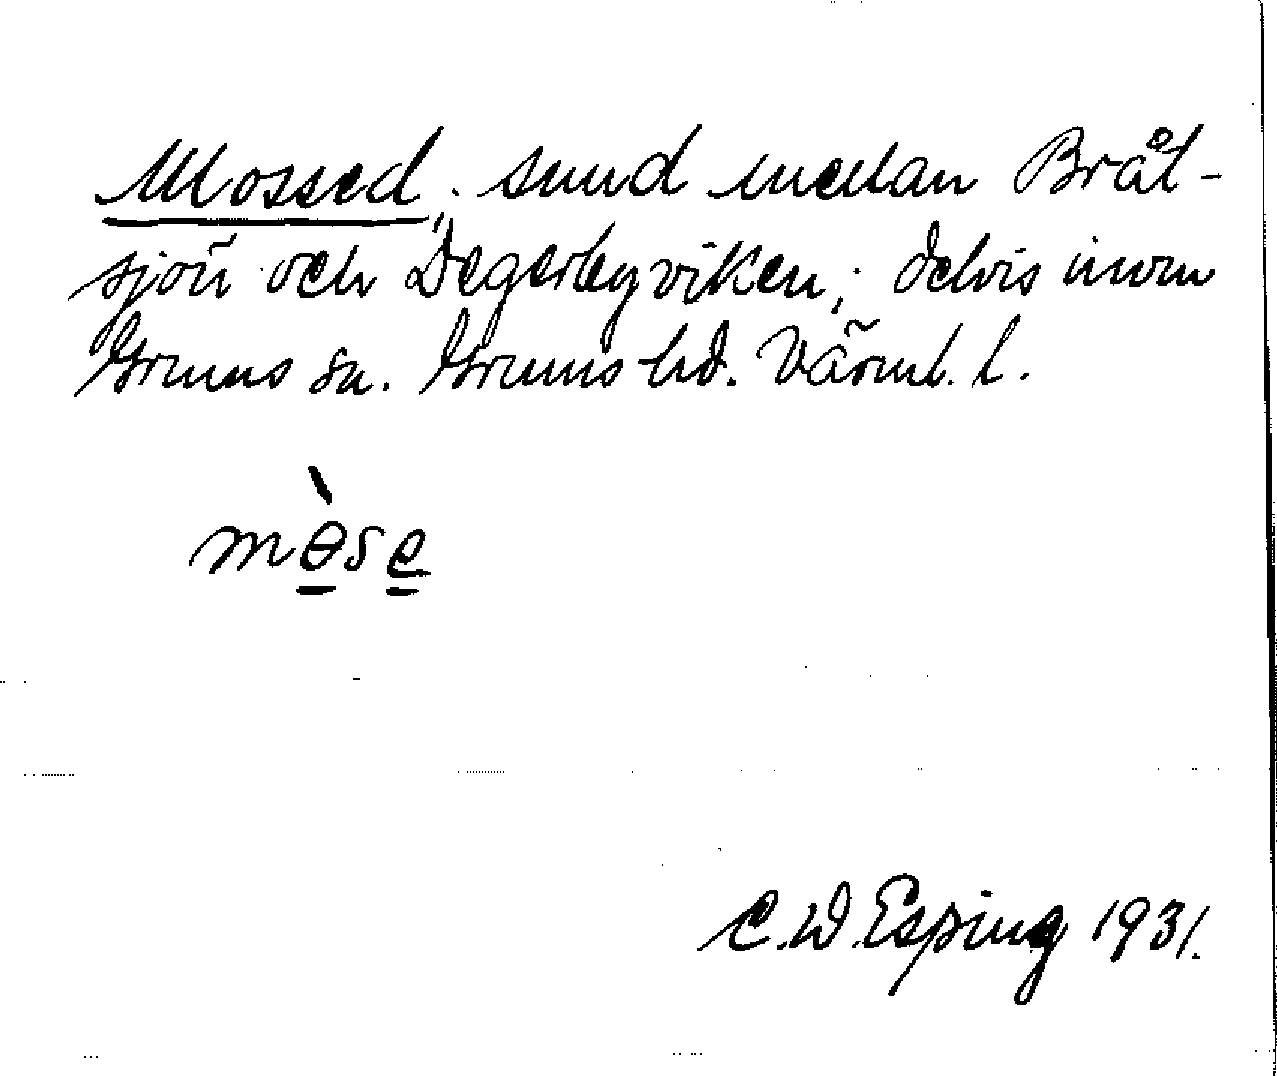 Mossed, sund mellan Bråt-
sjön och Degerbyviken; delvis inom
Grums sn. Grums hd. Värml. l.
mɵ̀se
C.W. Esping 1931.